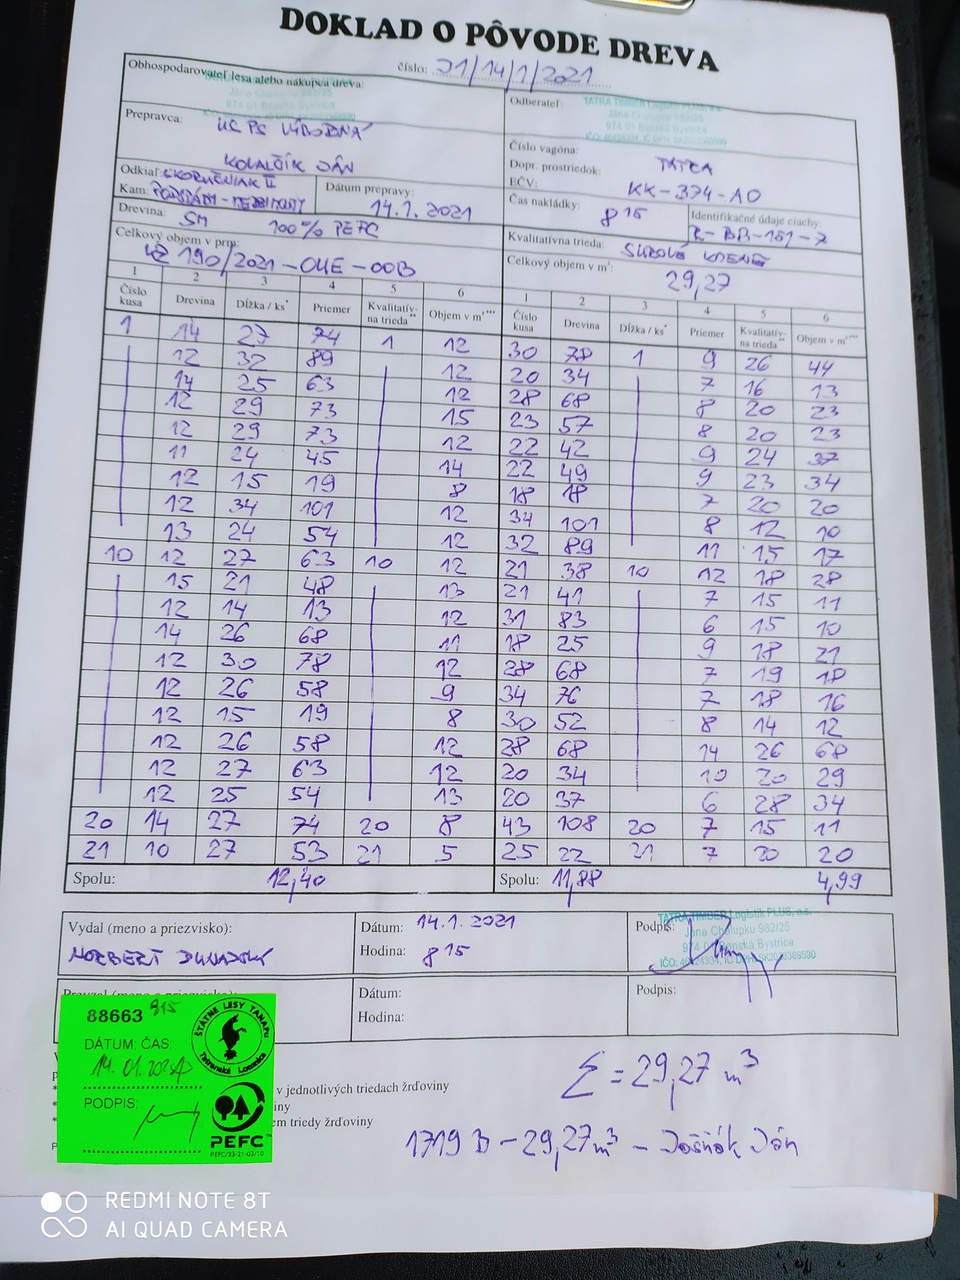 DOKLAD O PÔVODE DREVA
číslo: 21/14/1/2021
Obhospodarovateľ lesa alebo nákupca dreva:
Odberateľ:
TATRA TIMBER Logistik PLUS, a.s.
974 01 Banská Bystrica
Prepravca:
KOVALČÍK JÁN
Číslo vagóna:
Dopr. prostriedok: TATRA
EČV: KK-374-AO
Odkiaľ:
Kam:
Dátum prepravy:
14.1.2021
Čas nakládky: 8 15
Identifikačné údaje ciachy:
Drevina: SM 100% PEFC
Kvalitatívna trieda:
Celkový objem v prm:
190/2021-OUE-00B
Celkový objem v m³:
29,27
1 2 3 4 5 6 1 2 3 4 5 6
Číslo kusa Drevina Dĺžka / ks* Priemer Kvalitatív-na trieda** Objem v m³*** Číslo kusa Drevina Dĺžka / ks* Priemer Kvalitatív-na trieda** Objem v m³***
1 14 27 74 1 12 30 78 1 9 26 44
12 32 89 12 20 34 7 16 13
14 25 63 12 28 68 8 20 23
12 29 73 15 23 57 8 20 23
12 29 73 12 22 42 9 24 37
11 24 45 14 22 49 9 23 34
12 15 19 8 18 18 7 20 20
12 34 101 12 34 101 8 12 10
13 24 54 12 32 89 11 15 17
10 12 27 63 10 12 21 38 10 12 18 28
15 21 48 13 21 41 7 15 11
12 14 13 12 31 83 6 15 10
14 26 68 11 18 25 9 18 21
12 30 78 12 28 68 7 19 18
12 26 58 9 34 76 7 18 16
12 15 19 8 30 52 8 14 12
12 26 58 12 28 68 14 26 68
12 27 63 12 20 34 10 20 29
12 25 54 13 20 37 6 28 34
20 14 27 74 20 8 43 108 20 7 15 11
21 10 27 53 21 5 25 22 21 7 20 20
Spolu: 12,40
Spolu: 11,88 4,99
Vydal (meno a priezvisko):
NORBERT
Dátum: 14.1.2021
Hodina: 8 15
Podpis:
TATRA TIMBER Logistik PLUS, a.s.
Jána Chalupku 982/25
974 01 Banská Bystrica
Dátum:
Hodina:
Podpis:
88663 815
DÁTUM: ČAS:
PODPIS:
ŠTÁTNE LESY TANAPu
Tatranská Lomnica
PEFC
PEFC/23-21-03/10
v jednotlivých triedach žrďoviny
iny
em triedy žrďoviny
Σ = 29,27 m³
1719 D - 29,27 m³ - Jašňák Ján
REDMI NOTE 8T
AI QUAD CAMERA